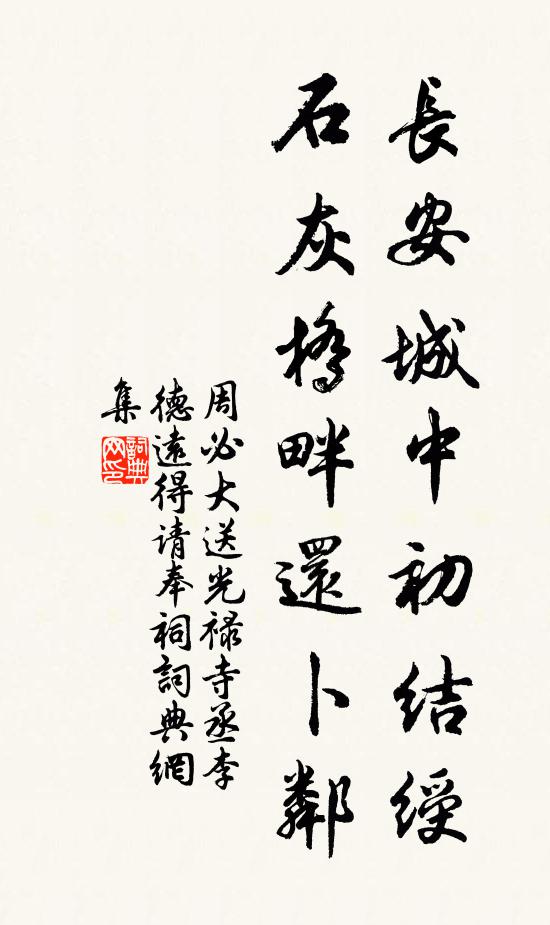 長安城中初結綬
石灰橋畔還卜鄰
周必大送光禄寺丞李
德遠得请奉祠詞典網
集
詞典网印